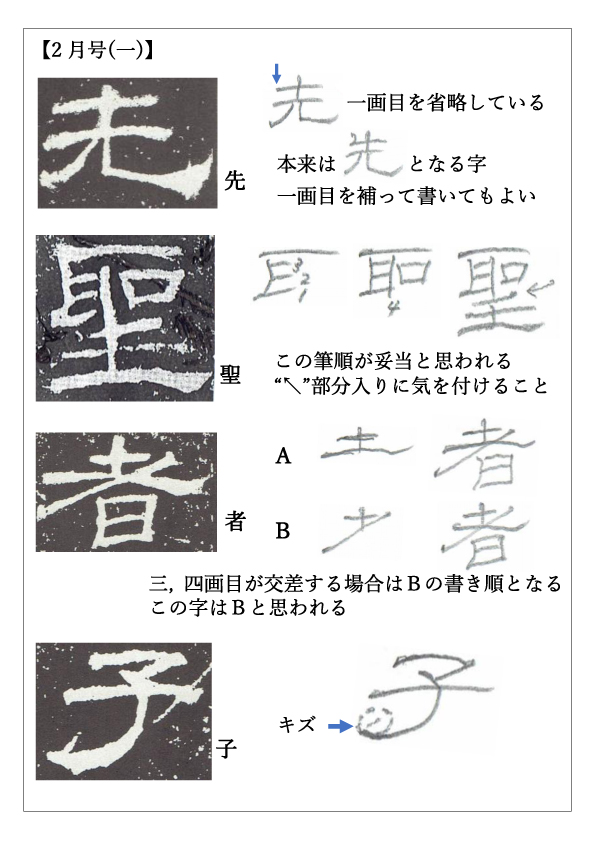 【2月号(一)】
先
一画目を省略している
本来は先となる字
一画目を補って書いてもよい
聖
3
2
1
4
この筆順が妥当と思われる
“↖”部分入りに気を付けること
者
A
者
B
者
三，四画目が交差する場合はＢの書き順となる
この字はＢと思われる
子
キズ
子